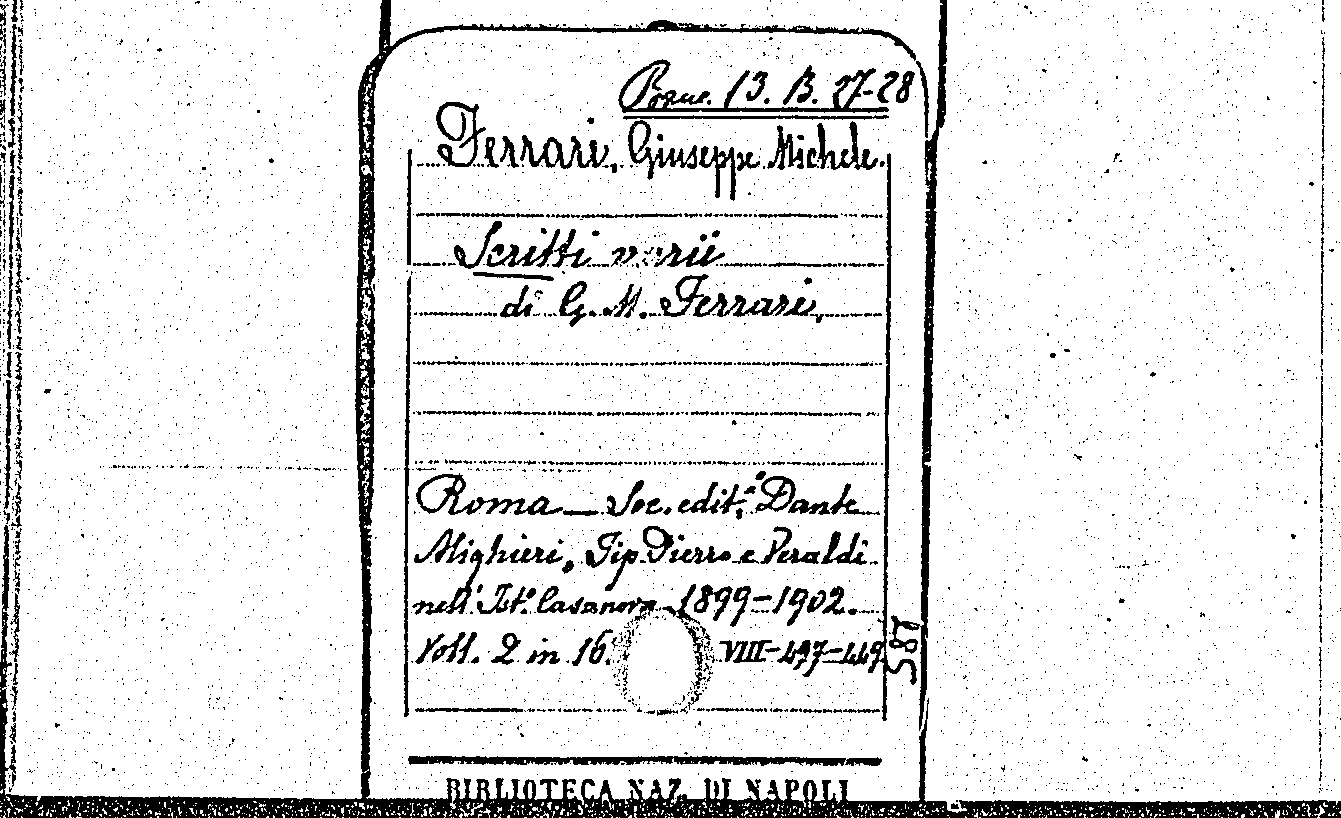 13. B. 27-28
Ferrari, Giuseppe Michele.
Scritti varii
di G. M. Ferrari,
Roma — Soc. edit.ª Dante
Alighieri, Tip. Pierro e Veraldi
nell' Ist.º Casanova, 1899-1902.
Voll. 2 in 16. VIII-497-449
587
BIBLIOTECA NAZ. DI NAPOLI